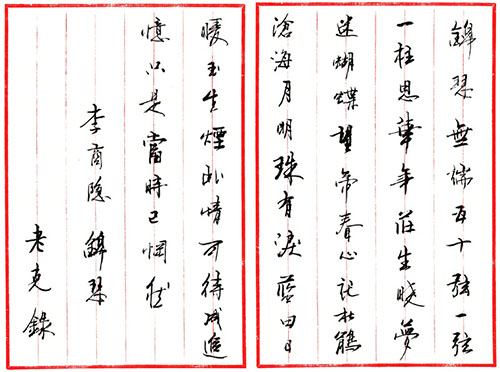 錦瑟無端五十弦一弦
一柱思華年莊生曉夢
迷蝴蝶望帝春心託杜鵑
滄海月明珠有淚藍田日
暖玉生煙此情可待成追
憶只是當時已惘然
李商隱 錦瑟
老克錄